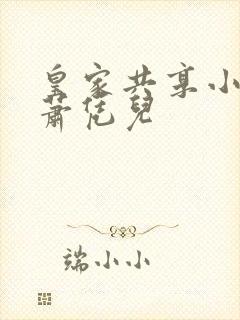 皇家共享小
萧恁儿
端小小